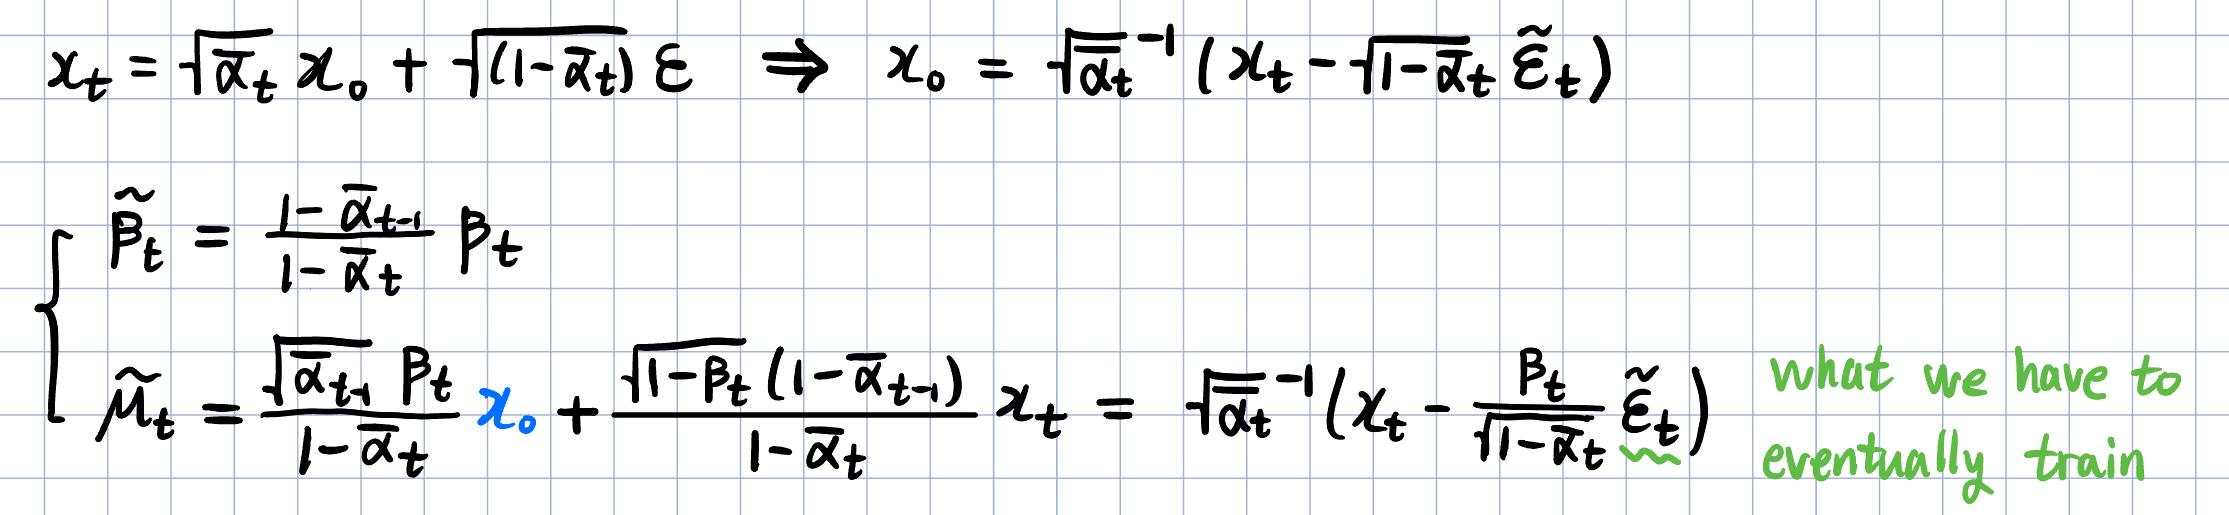 xₜ = √ᾱₜ x₀ + √(1-ᾱₜ) ε ⇒ x₀ = √ᾱₜ⁻¹ (xₜ - √1-ᾱₜ ε̃ₜ)
β̃ₜ = (1-ᾱₜ₋₁)/(1-ᾱₜ) βₜ
μ̃ₜ = (√ᾱₜ₋₁ βₜ)/(1-ᾱₜ) x₀ + (√1-βₜ (1-ᾱₜ₋₁))/(1-ᾱₜ) xₜ = √ᾱₜ⁻¹ (xₜ - βₜ/√1-ᾱₜ ε̃ₜ)
what we have to
eventually train